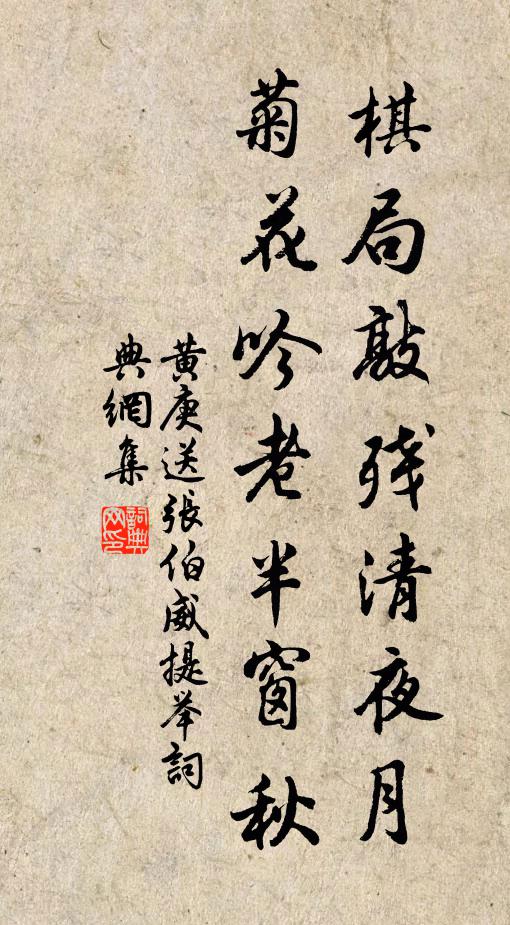 棋局敲残清夜月
菊花吟老半窗秋
黄庚送張伯威提举詞
典網集
詞典网印